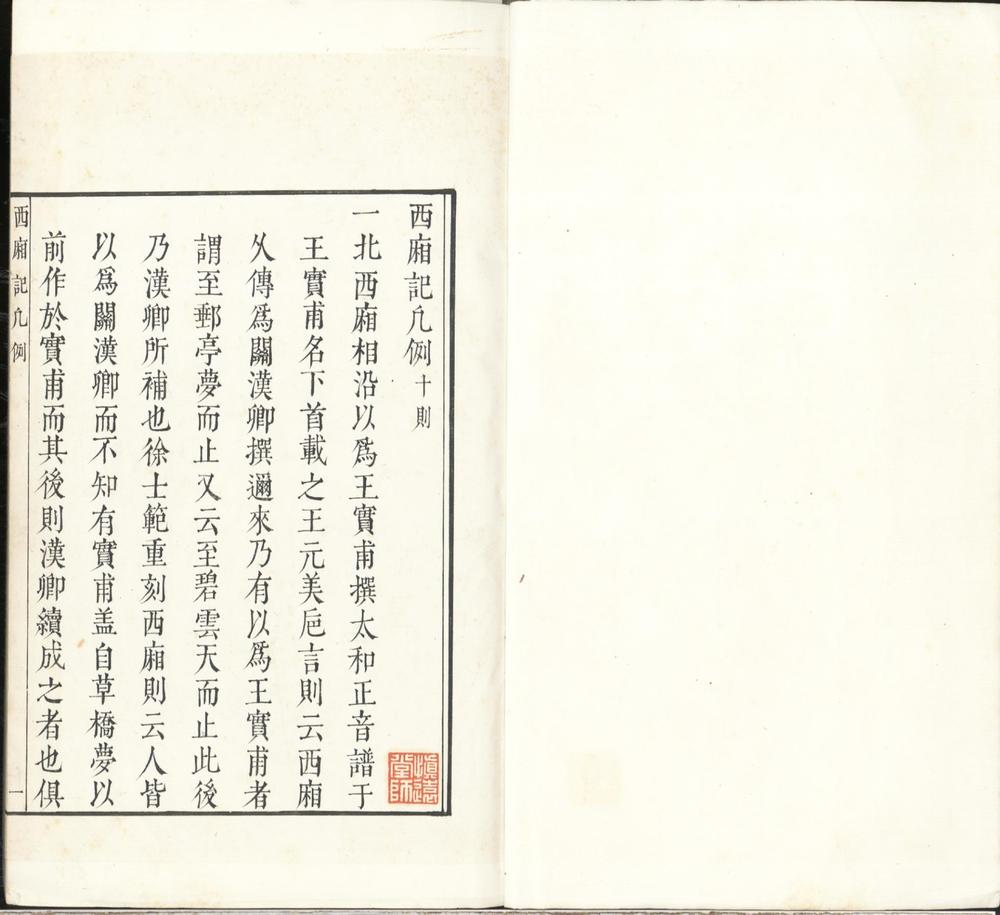 西廂記凡例十則
一北西廂相沿以爲王實甫撰太和正音譜于
王實甫名下首載之王元美巵言則云西廂
乆傳爲關漢卿撰邇來乃有以爲王實甫者
謂至郵亭夢而止又云至碧雲天而止此後
乃漢卿所補也徐士範重刻西廂則云人皆
以爲關漢卿而不知有實甫盖自草橋夢以
前作於實甫而其後則漢卿續成之者也俱
西廂記凡例
一